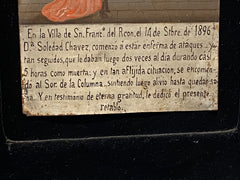 En la Villa de Sn. Franco. del Rcon. el 14 de Sbre. de 1896
Da. Soledad Chavez, comenzó a estar enferma de ataques y
tan seguidos, que le daban luego dos veces al dia durando casi
5 horas como muerta; y en tan aflijida cituacion, se encomen
dó al Sor de la Columna, sintiendo luego alivio hasta quedar sa
na. Y en testimonio de eterna gratitud, le dedicó el presente
retablo.